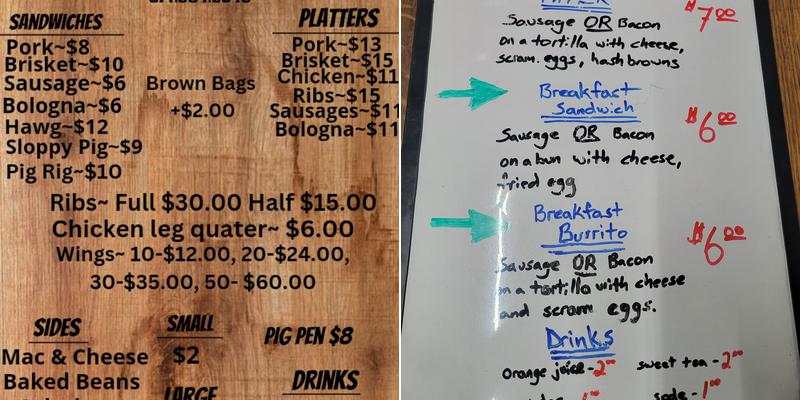 SANDWICHES
Pork~$8
Brisket~$10
Sausage~$6
Bologna~$6
Hawg~$12
Sloppy Pig~$9
Pig Rig~$10
Brown Bags
+$2.00
PLATTERS
Pork~$13
Brisket~$15
Chicken~$11
Ribs~$15
Sausages~$11
Bologna~$11
Ribs~ Full $30.00 Half $15.00
Chicken leg quater~ $6.00
Wings~ 10-$12.00, 20-$24.00,
30-$35.00, 50- $60.00
SIDES
Mac & Cheese
Baked Beans
SMALL
$2
LARGE
PIG PEN $8
DRINKS
$7.00
Sausage OR Bacon
on a tortilla with cheese,
scram. eggs, hashbrowns
Breakfast
Sandwich
$6.00
Sausage OR Bacon
on a bun with cheese,
fried egg
Breakfast
Burrito
$6.00
Sausage OR Bacon
on a tortilla with cheese
and scram eggs.
Drinks
orange juice - 2.00
sweet tea - 2.00
soda - 1.00